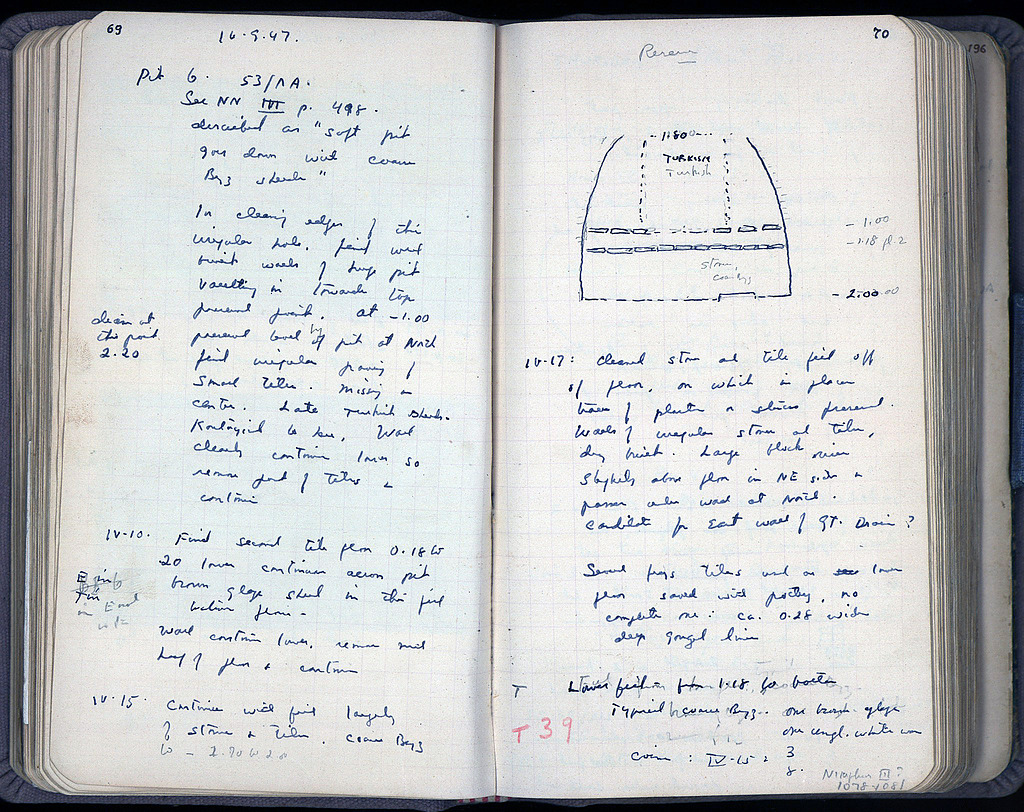 69
IV-9.47.
Pit 6. 53/ΛA.
See NN III p. 498.
described as "soft pit
goes down with coarse
Byz sherds"
In clearing edges of this
irregular hole, find well
built walls of large pit
vaulting in towards top
preserved point. at -1.00
preserved level of pit at North
find irregular paving of
small tiles. missing in
center. Late Turkish sherds.
clean at
this point
2.20
to be. Wall
clearly continues lower so
remove part of tiles &
continue
IV-10. Find second tile floor 0.18 to
20 lower continues across pit
brown glaze sherd in this fill
between floors-
Wall continues lower, remove
half of floor & continue
IV-15. Continue with fill largely
of stone & tiles. Coarse Byz
70
196
-1.80-
TURKISH
Turkish
-1.00
-1.18 fl. 2
stone,
coarse Byz
-2.00
IV-17: Cleaned stone and tile fill off
of floor, on which in places
traces of plaster or stucco preserved.
Walls of irregular stones and tiles,
dry built. Large block
slightly above floor in NE side &
passes under wall at North.
Candidate for East wall of GT. Drain?
Several frags tiles used on lower
floor saved with pottery, no
complete one: ca. 0.28 wide
deep lines
T
T 39
Lower fill from 1.18 to bottom
Typical coarse Byz. one brown glaze
one white ware
coins: IV-15: 3
8.
Nicephorus III?
1078-1081